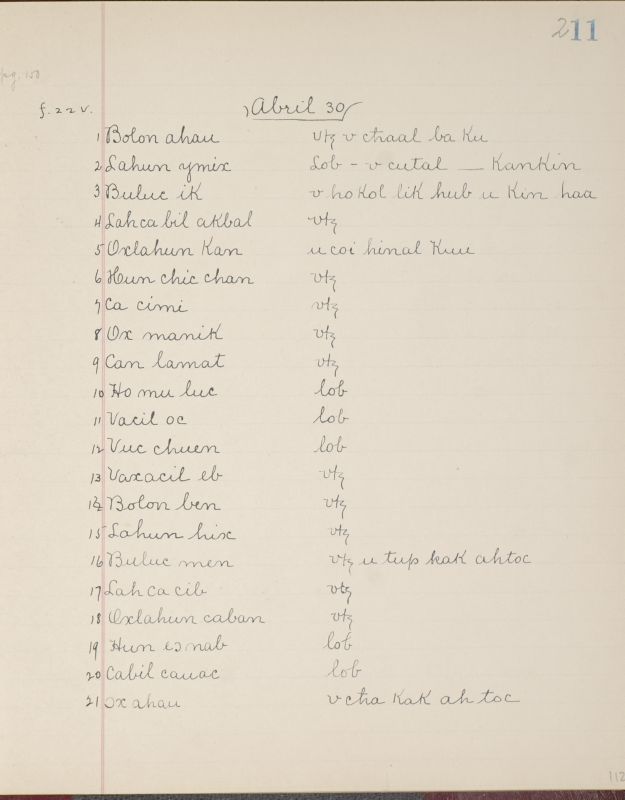 211
pg. 150
f. 22 v.
Abril 30
1 Bolon ahau vtz v chaal ba ku
2 Lahun ymix Lob - v cutal — KanKin
3 Buluc ik v hoKol lik hub u Kin haa
4 Lahca bil akbal vtz
5 Oxlahun Kan u coi hinal Kuu
6 Hun chic chan vtz
7 Ca cimi vtz
8 Ox manik vtz
9 Can lamat vtz
10 Ho mu luc lob
11 Vacil oc lob
12 Vuc chuen lob
13 Vaxacil eb vtz
14 Bolon ben vtz
15 Lahun hix vtz
16 Buluc men vtz u tup kak ahtoc
17 Lah ca cib vtz
18 Oxlahun caban vtz
19 Hun eɔnab lob
20 Cabil cauac lob
21 ox ahau v cha KaK ah toc
112